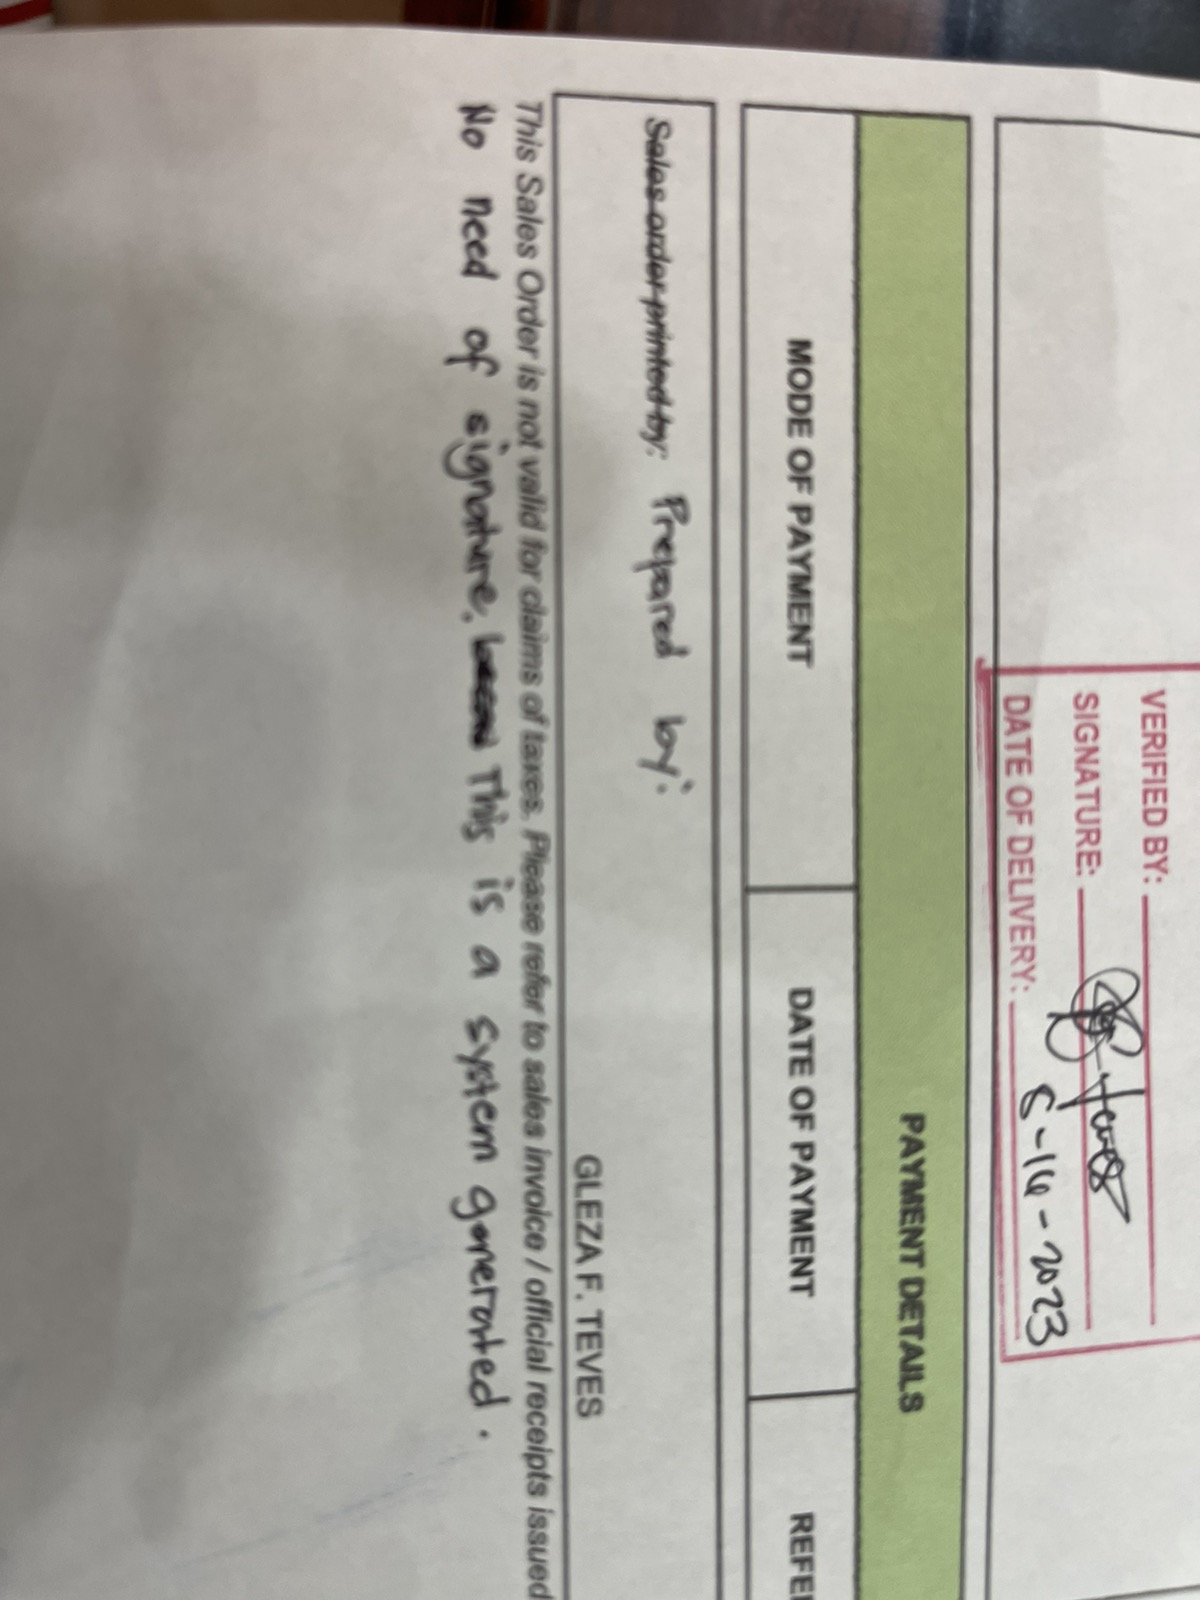 VERIFIED BY:
SIGNATURE: Teves
DATE OF DELIVERY: 5-16-2023
PAYMENT DETAILS
MODE OF PAYMENT DATE OF PAYMENT
Sales order printed by: Prepared by:
GLEZA F. TEVES
This Sales Order is not valid for claims of taxes. Please refer to sales invoice / official receipts issued
No need of signature. This is a system generated.